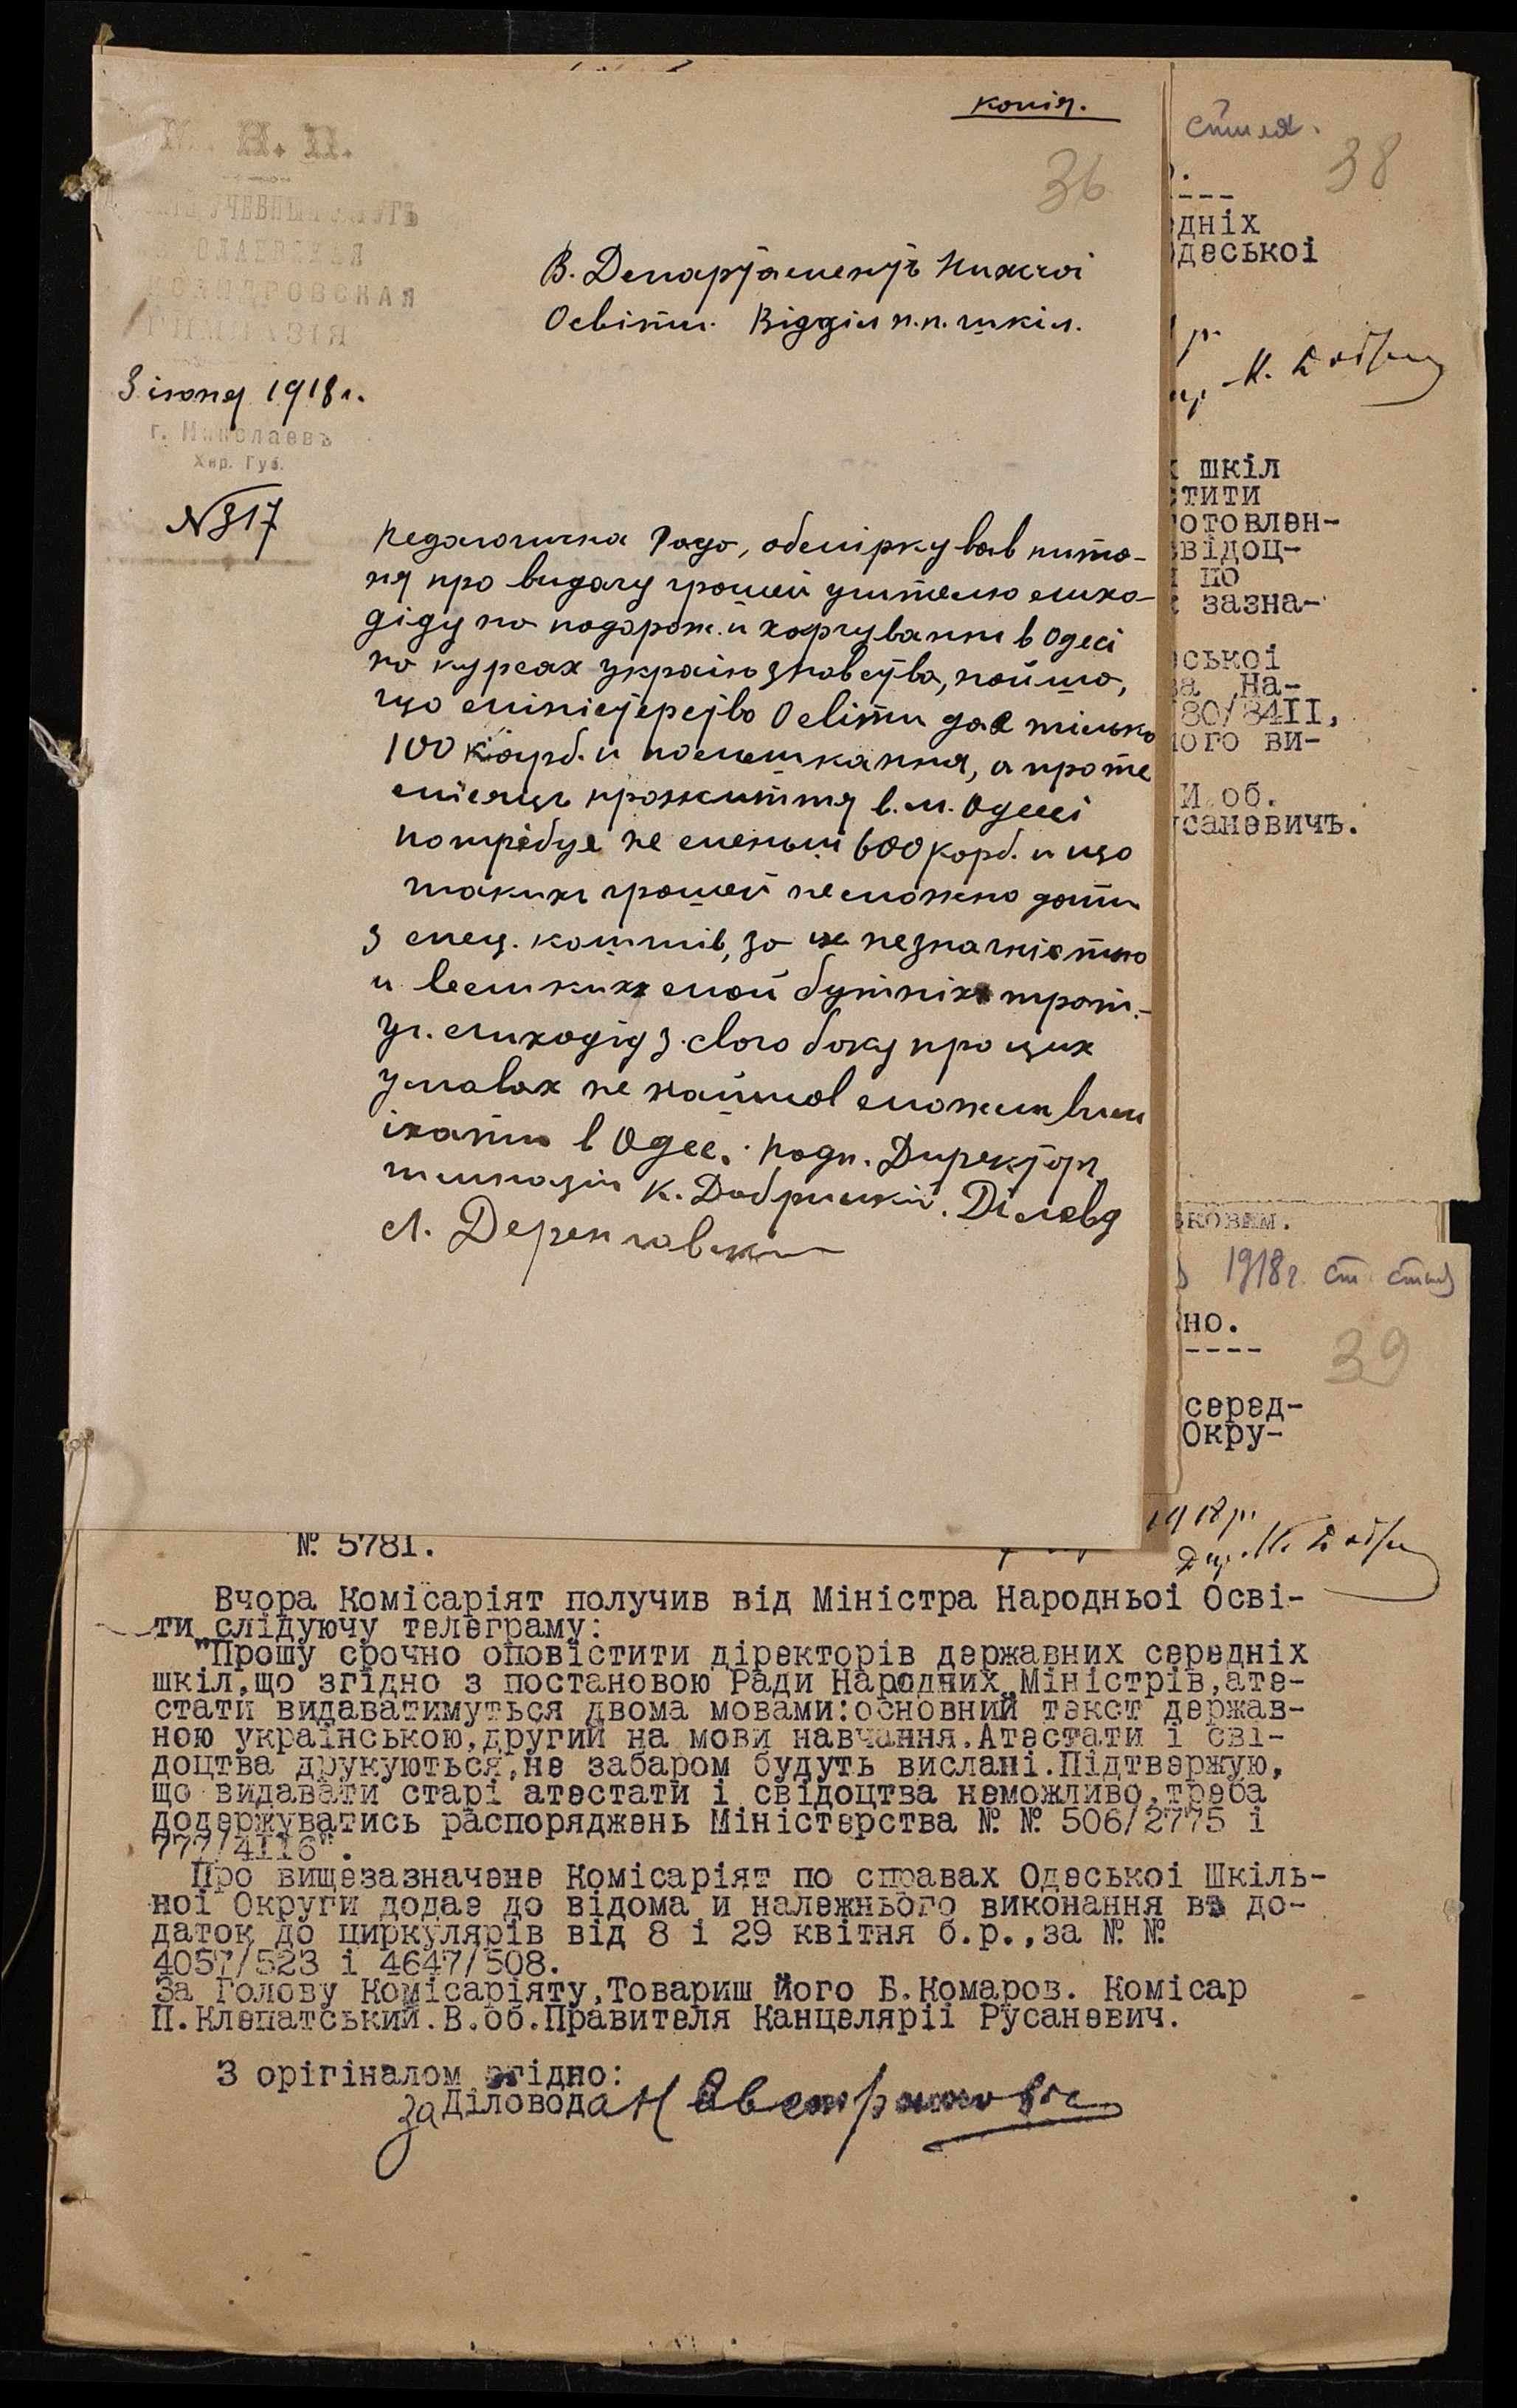 копія.
36
М. Н. П.
УЧЕБНЫЙ ОКРУГЪ
НИКОЛАЕВСКАЯ
АЛЕКСАНДРОВСКАЯ
ГИМНАЗІЯ
3 іюня 1918 г.
г. Николаевъ
Хер. Губ.
№ 317
В. Департаментъ Нижчоі
Освіти. Відділ п.п. шкіл.
Педагогична Рада, обміркував пита-
ня про видачу грошей учителю Лихо-
діду на подорож. й харчування в Одесі
на курсах українознавства, найшла,
що Міністерство Освіти дає тілько
100 карб. и помешкання, а проте
місяць прожиття в. м. Одессі
потрібує не меньш 600 карб. и що
такихъ грошей не можно дати
з спец. коштів, за их незначністю
и великих мой бутніх трат.-
Уч. Лиходід з. свого боку про цих
умовах не найшов можливим
іхати в Одес. Подп. Директоръ
гимназіи К. Добринскій. Діловод
Л. Деренговски
стиля.
38
дніх
деськоі
р.
К. Добрин
шкіл
тити
отовлен-
відоц-
по
зазна-
ськоі
На-
80/3411,
ого ви-
И об.
саневичъ.
ковим.
1918 г. ст. стил
но.
39
серед-
Окру-
1918 р.
Дир. К. Добрин
№ 5781.
Вчора Комісаріят получив від Міністра Народньоі Осві-
ти слідуючу телеграму:
"Прошу срочно оповістити діректорів державних середніх
шкіл,що згідно з постановою Ради Народних Міністрів,ате-
стати видаватимуться двома мовами:основний текст держав-
ною українською,другий на мови навчання.Атестати і сві-
доцтва друкуються,не забаром будуть вислані.Підтвержую,
що видавати старі атестати і свідоцтва неможливо,треба
додержуватись распоряджень Міністерства № № 506/2775 і
777/4116".
Про вищезазначене Комісаріят по справах Одеськоі Шкіль-
ноі Округи додае до відома и належнього виконання въ до-
даток до циркулярів від 8 і 29 квітня б.р.,за № №
4057/523 і 4647/508.
За Голову Комісаріяту,Товариш його Б.Комаров. Комісар
П.Клепатський.В.об.Правителя Канцеляріі Русаневич.
З орігіналом згідно:
за Діловода